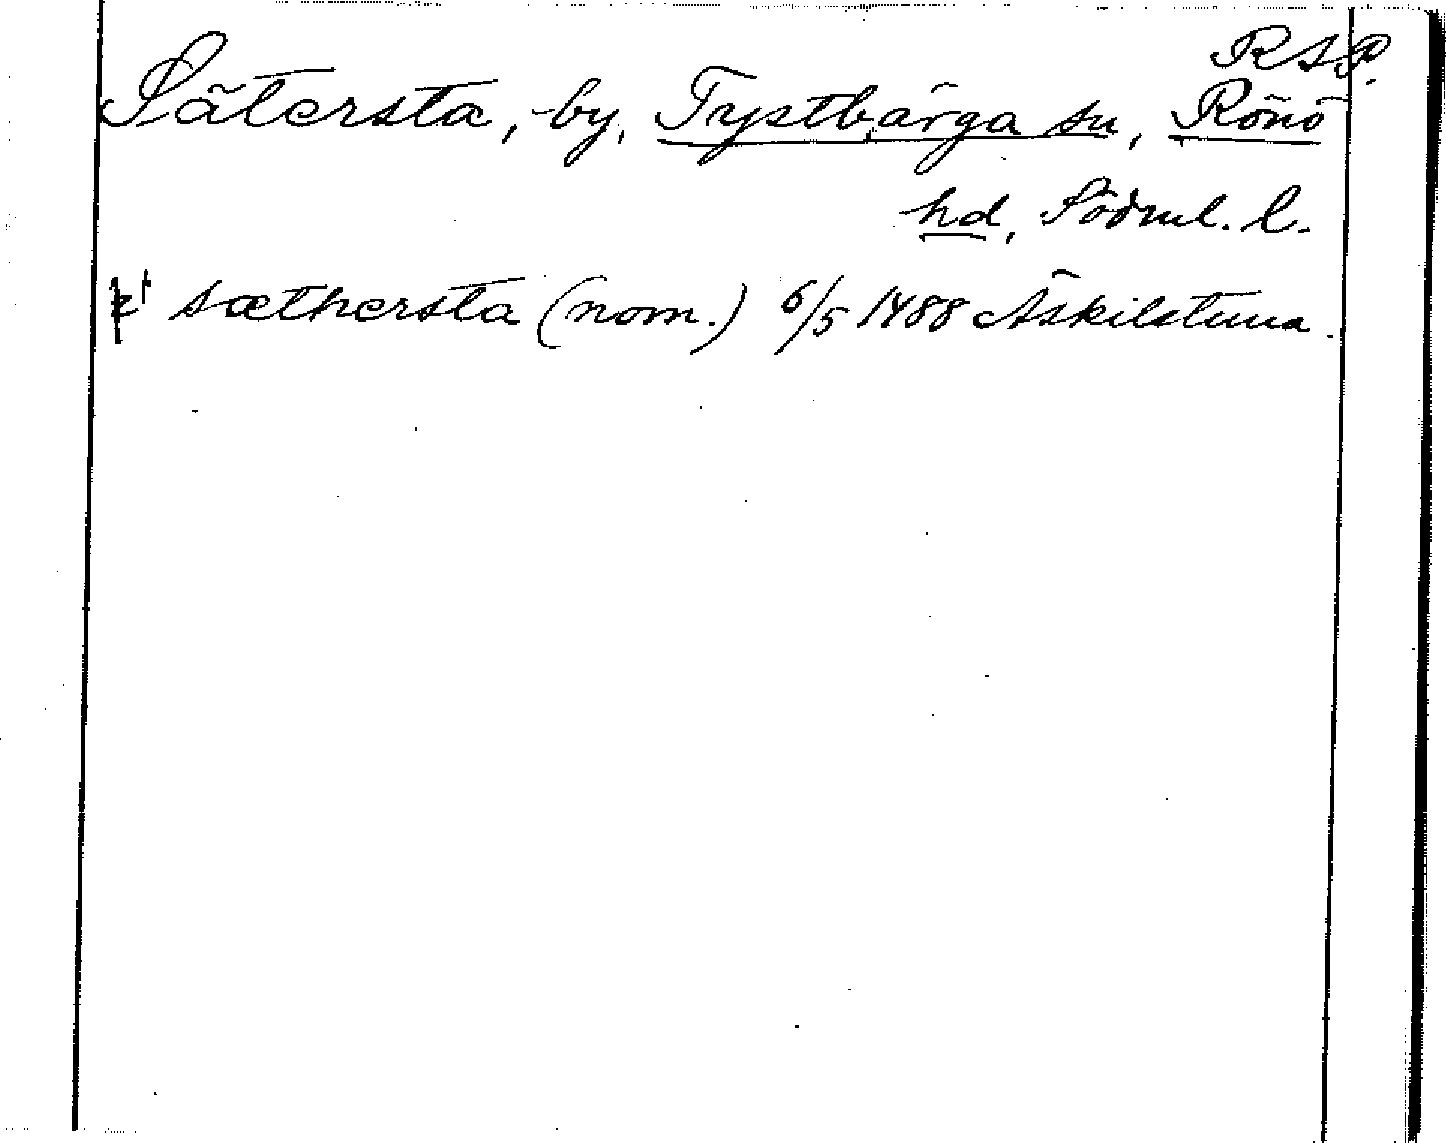 RSP.
Sätersta, by, Tystbärga sn, Rönö
hd, Södml. l.
sæthersta (nom.) 6/5 1488 Äskilstuna.